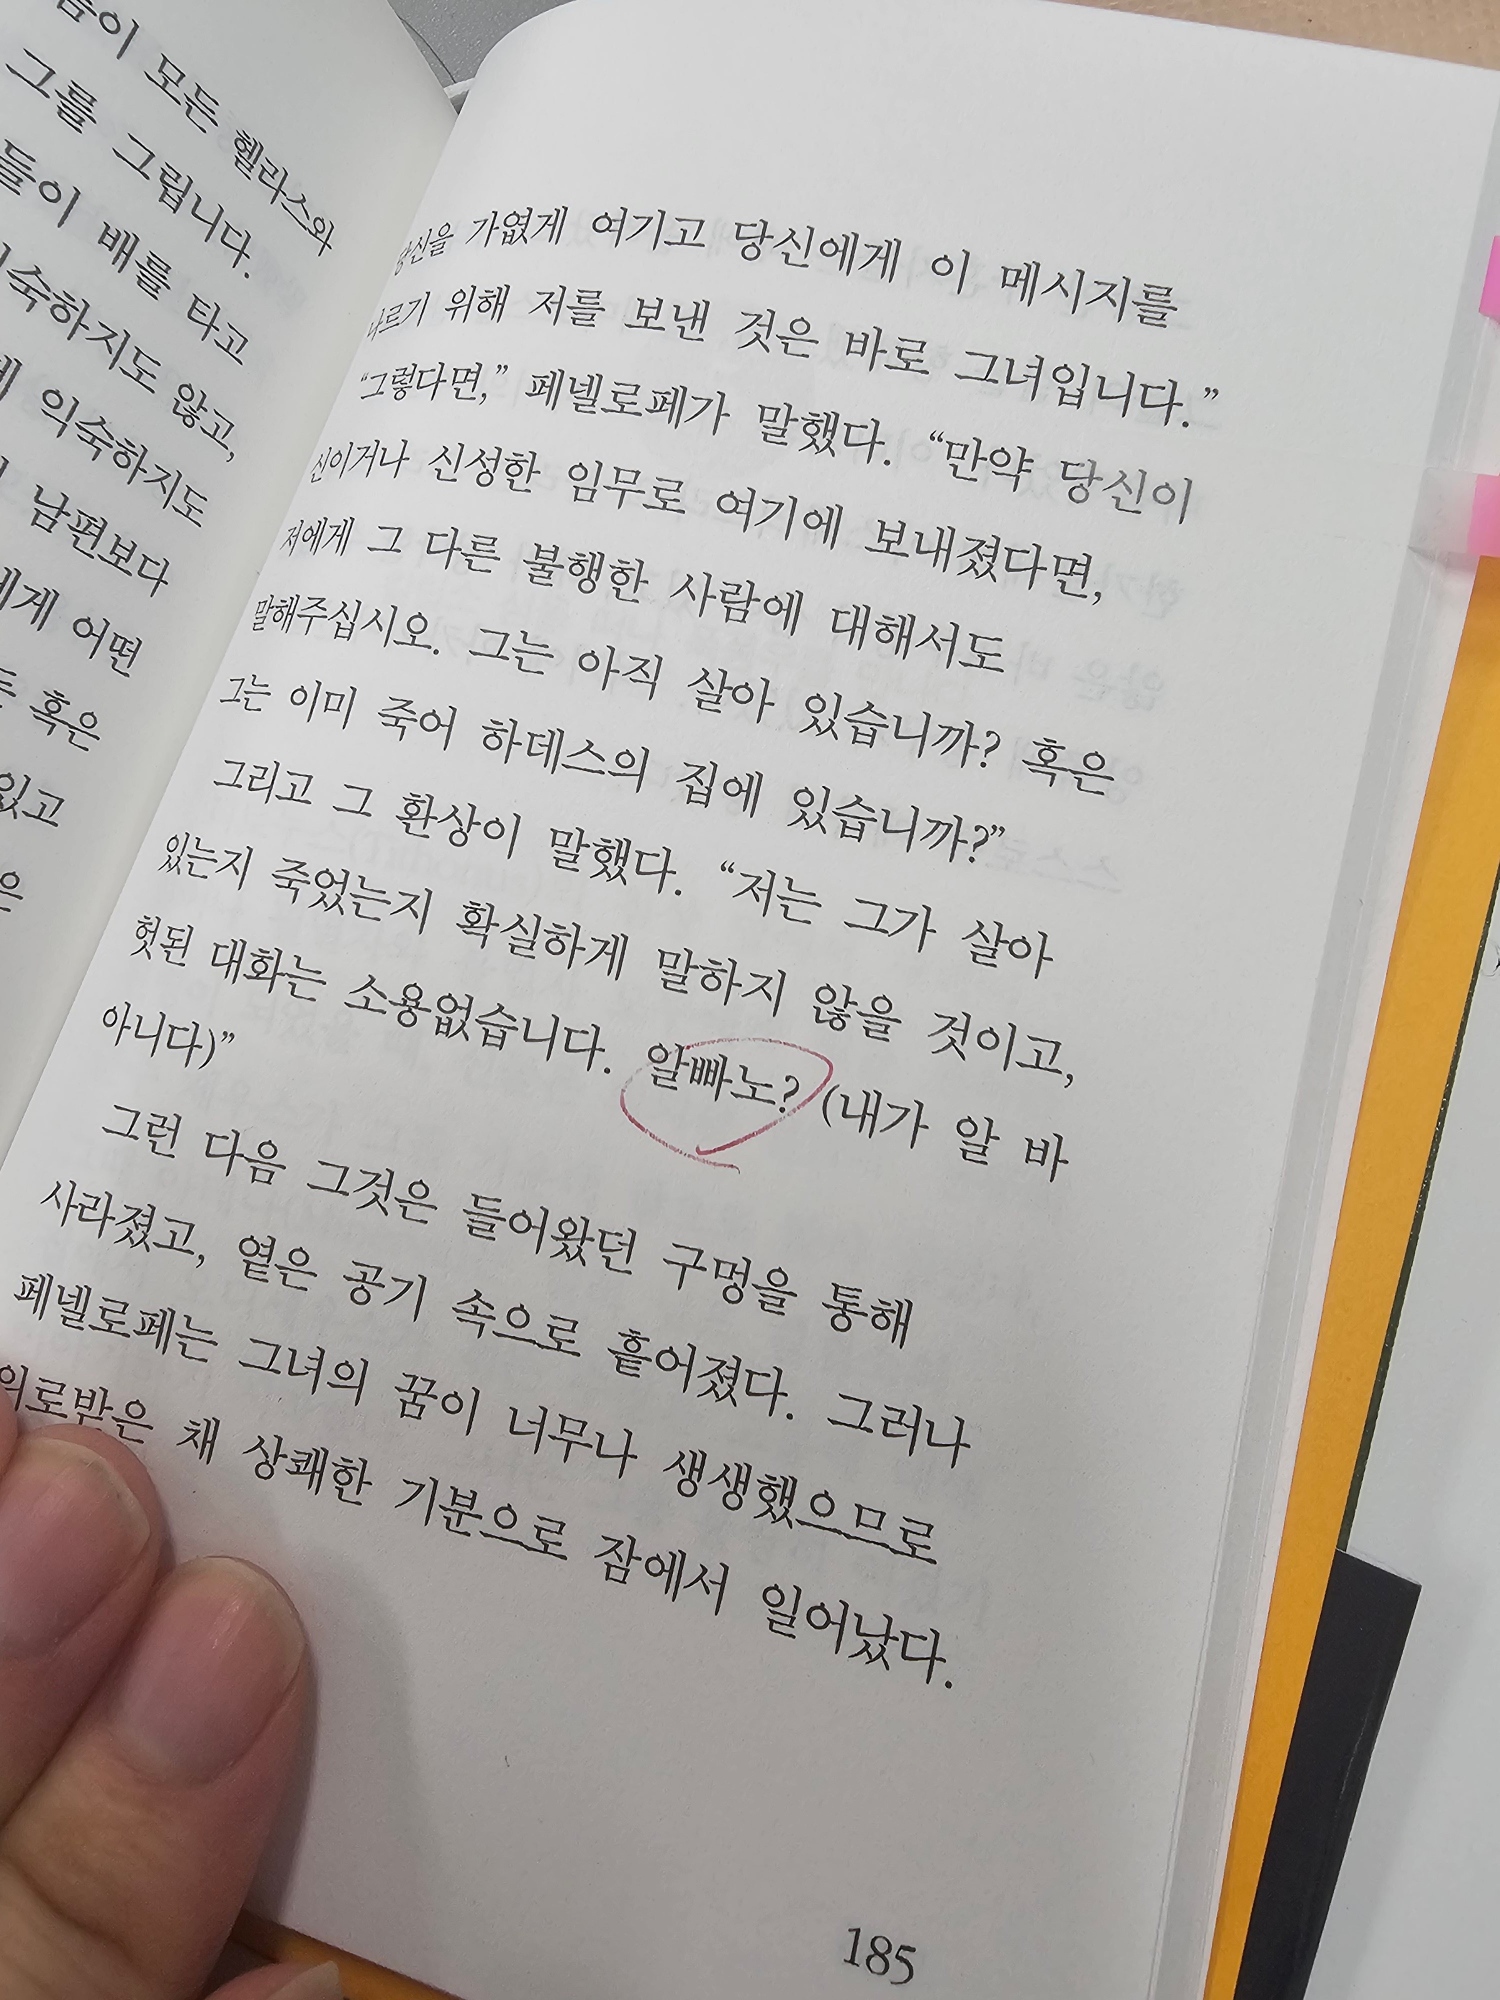 이 모든 헬라스와
그를 그립니다.
들이 배를 타고
숙하지도 않고,
익숙하지도
남편보다
에게 어떤
혹은
있고
은
당신을 가엾게 여기고 당신에게 이 메시지를
나르기 위해 저를 보낸 것은 바로 그녀입니다.”
“그렇다면,” 페넬로페가 말했다. “만약 당신이
신이거나 신성한 임무로 여기에 보내졌다면,
저에게 그 다른 불행한 사람에 대해서도
말해주십시오. 그는 아직 살아 있습니까? 혹은
그는 이미 죽어 하데스의 집에 있습니까?”
그리고 그 환상이 말했다. “저는 그가 살아
있는지 죽었는지 확실하게 말하지 않을 것이고,
헛된 대화는 소용없습니다. 알빠노? (내가 알 바
아니다)”
그런 다음 그것은 들어왔던 구멍을 통해
사라졌고, 옅은 공기 속으로 흩어졌다. 그러나
페넬로페는 그녀의 꿈이 너무나 생생했으므로
위로받은 채 상쾌한 기분으로 잠에서 일어났다.
185